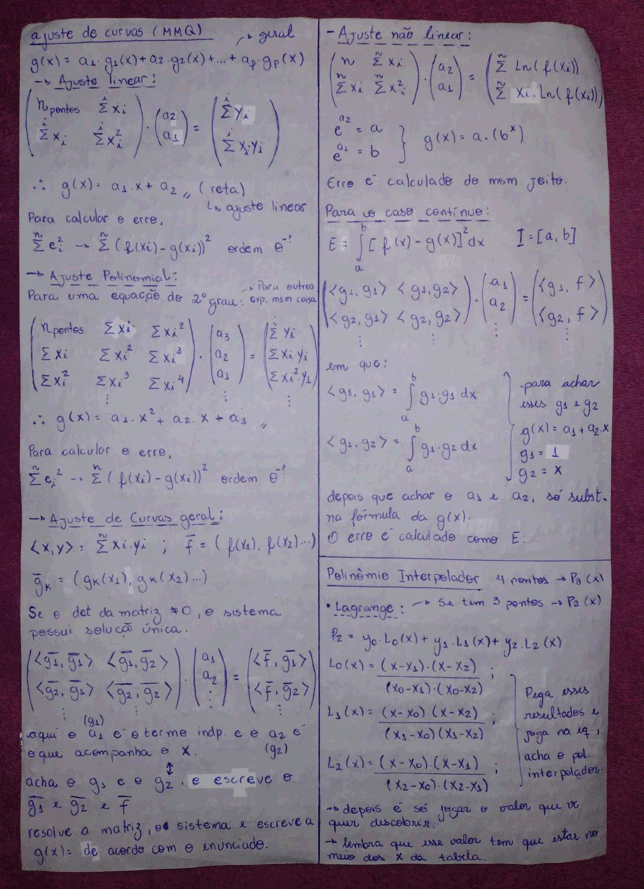 ajuste de curvas (MMQ) ↗ geral
g(x) = a1. g1(x) + a2. g2(x) + ... + ap. gp(x)
→ Ajuste linear:
( n pontos  Σxi ) . ( a2 ) = ( Σyi )
( Σxi  Σxi² )   ( a1 )   ( Σxi.yi )
∴ g(x) = a1.x + a2 ,, (reta)
↳ ajuste linear
Para calcular o erro,
Σei² → Σ(f(xi) - g(xi))² ordem e^-?
→ Ajuste Polinomial:
Para uma equação do 2º grau: → Para outros exp. msm coisa
( n pontos  Σxi  Σxi² )   ( a3 )   ( Σyi )
( Σxi  Σxi²  Σxi³ ) . ( a2 ) = ( Σxi.yi )
( Σxi²  Σxi³  Σxi⁴ )   ( a1 )   ( Σxi².yi )
⋮ ⋮ ⋮
∴ g(x) = a1.x² + a2.x + a3 ,,
Para calcular o erro,
Σei² → Σ(f(xi) - g(xi))² ordem e^-?
→ Ajuste de Curvas geral:
<x,y> = Σxi.yi ; f̄ = (f(x1), f(x2)...)
ḡk = (gk(x1), gk(x2)...)
Se o det da matriz ≠0, o sistema
possui soluçã única.
( <ḡ1, ḡ1>  <ḡ1, ḡ2> ) . ( a1 ) = ( <f̄, ḡ1> )
( <ḡ2, ḡ1>  <ḡ2, ḡ2> )   ( a2 )   ( <f̄, ḡ2> )
⋮ ⋮ ⋮ ⋮
(g1)
aqui o a1 é o termo indp. e o a2 é
o que acompanha o x. (g2)
acha o g1 e o g2, e escreve o
ḡ1 e ḡ2 e f̄
resolve a matriz, o sistema e escreve a
g(x) = de acordo com o enunciado.
- Ajuste não linear:
( n  Σxi ) . ( a2 ) = ( Σ Ln(f(xi)) )
( Σxi  Σxi² )   ( a1 )   ( Σ xi.Ln(f(xi)) )
e^a2 = a
e^a1 = b } g(x) = a.(b^x)
Erro é calculado do msm jeito.
Para o caso contínuo:
E = ∫ab [f(x) - g(x)]² dx   I = [a, b]
( <g1, g1>  <g1, g2> ) . ( a1 ) = ( <g1, f> )
( <g2, g1>  <g2, g2> )   ( a2 )   ( <g2, f> )
⋮ ⋮ ⋮ ⋮
em que:
<g1, g1> = ∫ab g1.g1 dx
<g1, g2> = ∫ab g1.g2 dx
para achar
esses g1 e g2
g(x) = a1 + a2.x
g1 = 1
g2 = x
depois que achar o a1 e a2, só subst.
na fórmula da g(x).
O erro é calculado como E.
Polinômio Interpolador 4 pontos → P3(x)
• Lagrange: → Se tem 3 pontos → P2(x)
P2 = y0.L0(x) + y1.L1(x) + y2.L2(x)
L0(x) = (x-x1).(x-x2) / (x0-x1).(x0-x2) ;
L1(x) = (x-x0)(x-x2) / (x1-x0)(x1-x2) ;
L2(x) = (x-x0).(x-x1) / (x2-x0).(x2-x1) ;
Pega esses
resultados e
joga na eq,
acha o pol.
interpolador.
→ depois é só jogar o valor que vc
quer descobrir.
→ lembra que esse valor tem que estar no
meio dos x da tabela.